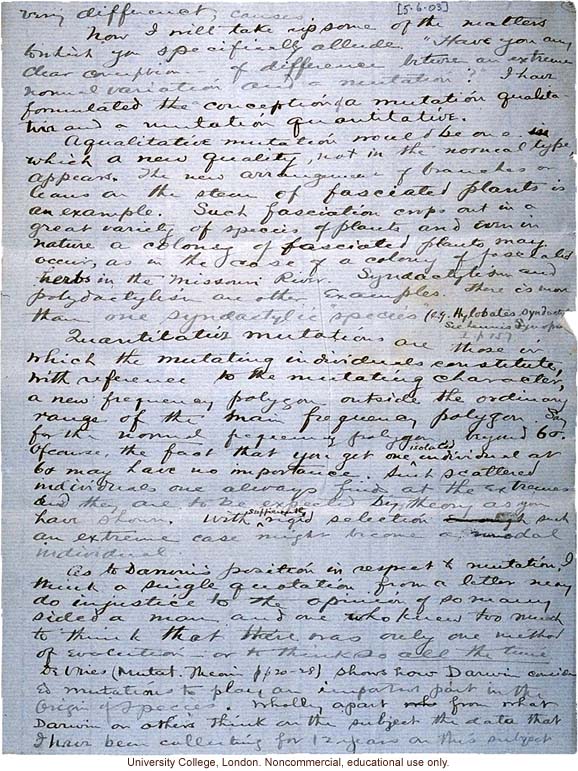 very different, causes. [5-6-03]
Now I will take up some of the matters
to which you specifically allude. "Have you any
clear conception - of difference between an extreme
normal variation and a mutation?" I have
formulated the conception of a mutation qualita-
tive and a mutation quantitative.
A qualitative mutation would be one in
which a new quality, not in the normal type
appears. The new arrangement of branches or
leaves on the stem of fasciated plants is
an example. Such fasciation crops out in a
great variety of species of plants and even in
nature a colony of fasciated plants may
occur, as in the case of a colony of fasciated
herbs in the Missouri River. Syndactylism and
polydactylism are other examples. There is more
than one syndactylic species (e.g. Hylobates syndacty
See
p 157)
Quantitative mutations are those in
which the mutating individuals constitute,
with reference to the mutating character,
a new frequency polygon outside the ordinary
range of the main frequency polygon. Say
for the normal frequency polygon beyond 60.
Of course, the fact that you get one isolated individual at
60 may have no importance. Such scattered
individuals one always finds at the extremes
and they are to be expected by theory as you
have shown. With sufficiently rigid selection such
an extreme case might become a modal
individual.
As to Darwin's position in respect to mutation, I
think a single quotation from a letter may
do injustice to the opinion of so many
sided a man and one who knew too much
to think that there was only one method
of evolution - or to think so all the time
De Vries (Mutat. Theorie pp 20-28) shows how Darwin consider
ed mutations to play an important part in the
Origin of Species. Wholly apart from what
Darwin or others think on the subject the data that
I have been collecting for 12 years on this subject
University College, London. Noncommercial, educational use only.